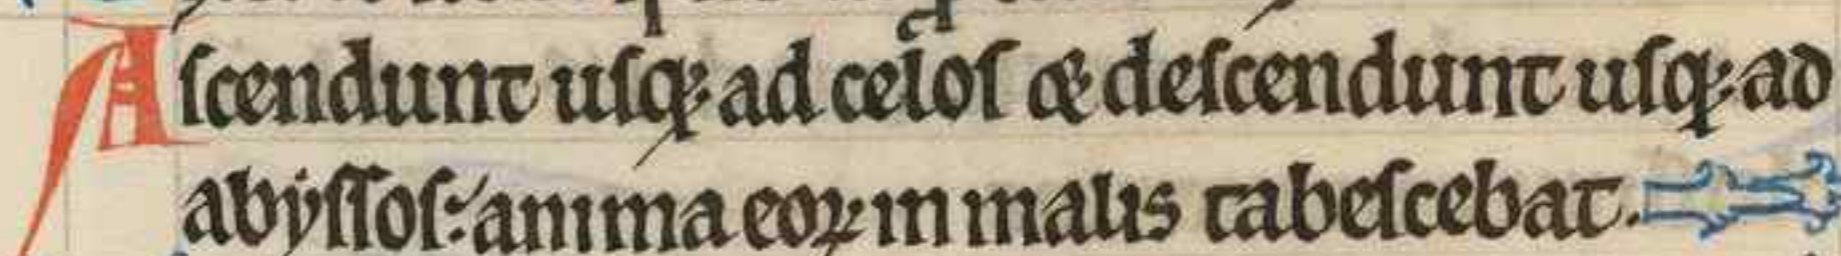 Aſcendunt uſqꝫ ad celoſ & deſcendunt uſqꝫ ad
abẏſſoſ: anima eoꝝ in malis tabeſcebat.